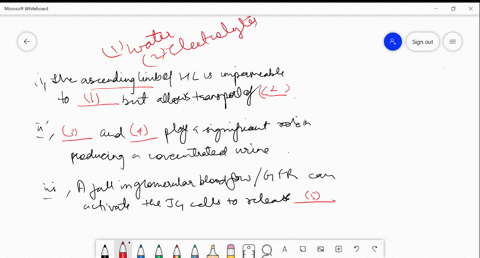 Microsoft Whiteboard
Sign out
(1) water
(2) Electrolytes
i, the ascending limb of HL is impermeable
to (1) but allows transport of (2)
ii, (3) and (4) play a significant role in
producing a concentrated urine.
iii, A fall in glomerular blood flow/GFR can
activate the JG cells to release (5)